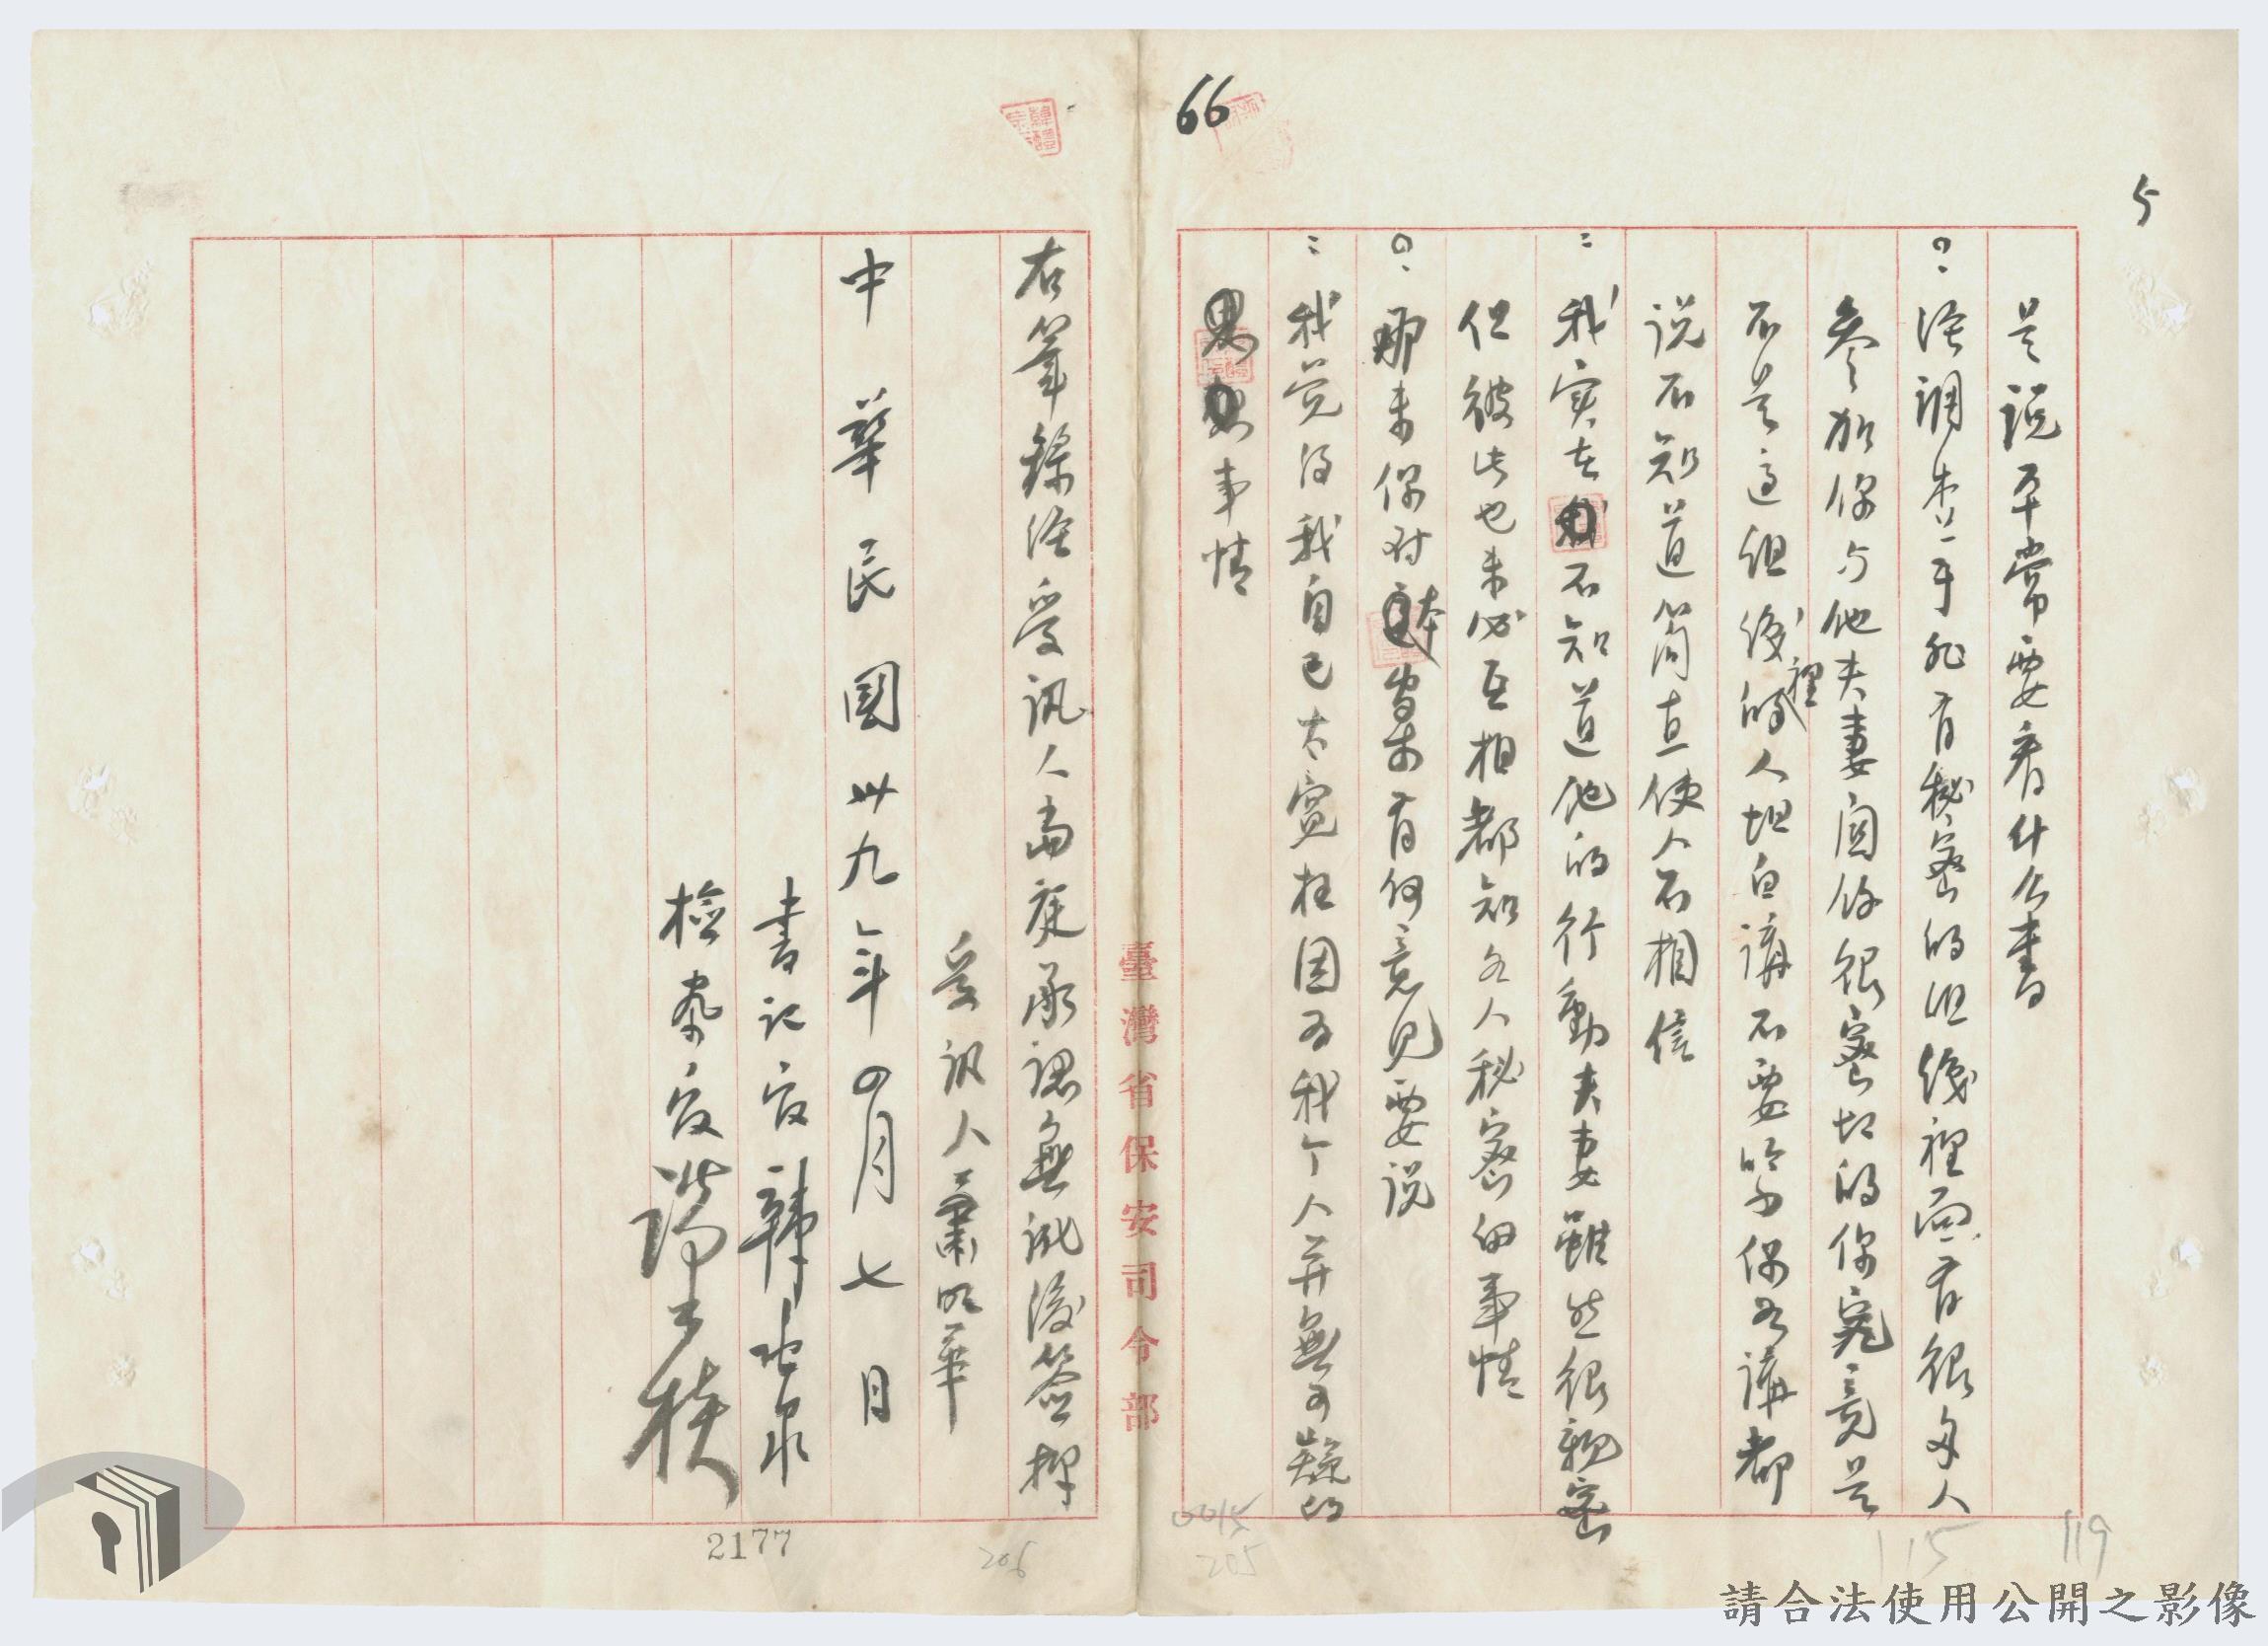 66
5
是說平常要看什么書
?: 經調查于非有秘密的组織裡面有很多人
參加你与他夫妻关係很密切的你究竟是
不是這组織裡的人坦白講不要吟为你不講都
说不知道简直使人不相信
: 我實在不知道他的行動夫妻雖然很親密
但彼此也未必互相都知各人秘密的事情
?: 那末你对本案有何意見要说
: 我觉得我自已太寃枉因为我个人并無可疑的
事情
臺灣省保安司令部
右筆錄经受訊人當庭承認無訛後簽押
受訊人 蕭明華
中華民國卅九年四月七日
書記官 韓
檢察官 端木棪
0015
205
206
115
119
2177
請合法使用公開之影像